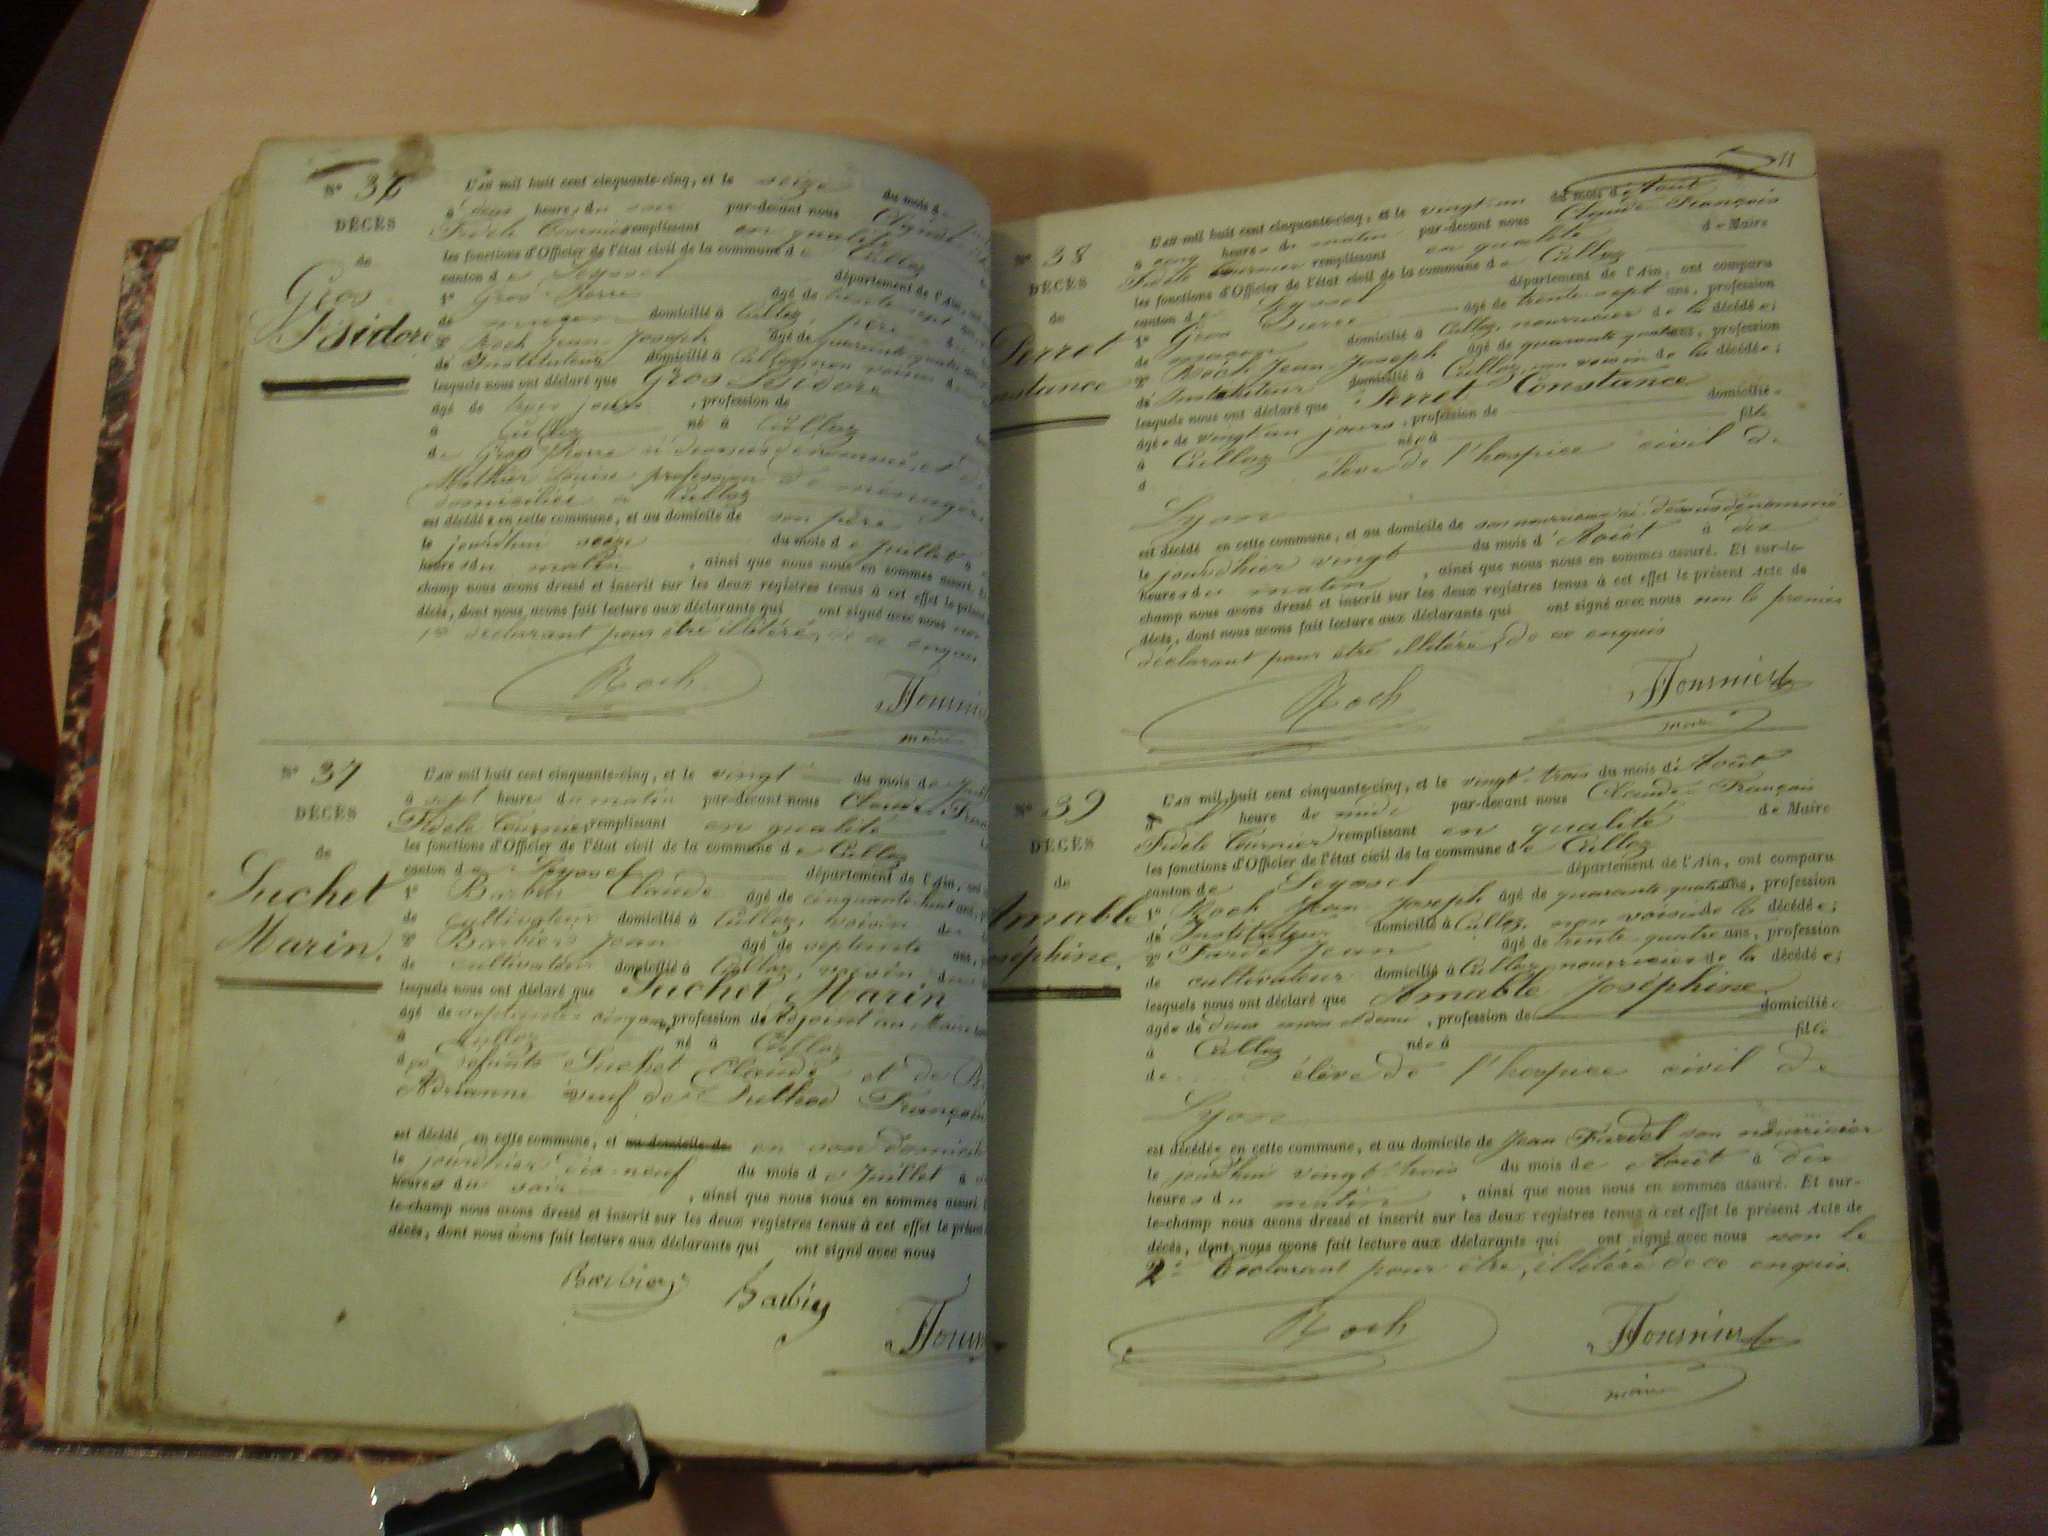 Nº 36
DÉCÈS
de
Gros
Isidore
L'an mil huit cent cinquante-cinq, et le seize du mois de
à deux heures du soir par-devant nous Claude
Fidele Tournier remplissant en qualité
les fonctions d'Officier de l'état civil de la commune de Culloz
canton de Seyssel département de l'Ain,
1º Gros Pierre âgé de trente sept
de maçon domicilié à Culloz, père
2º Roch Jean-Joseph âgé de quarante quatre
de Instituteur domicilié à Culloz, non voisin d
lesquels nous ont déclaré que Gros Isidore
âgé de trois jours, profession de
à Culloz né à Culloz
de Gros Pierre ci dessus dénommé, et de
Mathieu Louise profession de ménagère
domiciliée à Culloz
est décédé en cette commune, et au domicile de son père
le jourdhui seize du mois de Juillet à
heures du matin, ainsi que nous nous en sommes assuré.
champ nous avons dressé et inscrit sur les deux registres tenus à cet effet le présent
décès, dont nous avons fait lecture aux déclarants qui ont signé avec nous non
1er déclarant pour être illétéré, de ce enquis
Roch
Tournier
maire
Nº 37
DÉCÈS
de
Suchet
Marin.
L'an mil huit cent cinquante-cinq, et le vingt du mois de
à sept heures du matin par-devant nous Claude
Fidele Tournier remplissant en qualité
les fonctions d'Officier de l'état civil de la commune de Culloz
canton de Seyssel département de l'Ain,
1º Barbier Claude âgé de cinquante huit ans,
de cultivateur domicilié à Culloz, voisin de
2º Barbier Jean âgé de septente ans,
de cultivateur domicilié à Culloz, voisin
lesquels nous ont déclaré que Suchet Marin
âgé de septente cinq ans, profession de Adjoint au Maire
à Culloz né à Culloz
de défunts Suchet Claude et de
Adrianne veuf de Françoise
est décédé en cette commune, et au domicile de en son domicile
le jourdhier dix-neuf du mois de Juillet à
heures du soir, ainsi que nous nous en sommes assuré
le-champ nous avons dressé et inscrit sur les deux registres tenus à cet effet le présent
décès, dont nous avons fait lecture aux déclarants qui ont signé avec nous
Barbier Barbier
Tournier
11
Nº 38
DÉCÈS
de
Perret
Constance
L'an mil huit cent cinquante-cinq, et le vingt-un du mois d'Août
à cinq heures du matin par-devant nous Claude François
Fidele Tournier remplissant en qualité de Maire
les fonctions d'Officier de l'état civil de la commune de Culloz
canton de Seyssel département de l'Ain, ont comparu
1º Gros Pierre âgé de trente-sept ans, profession
de maçon domicilié à Culloz, nourricier de la décédée;
2º Roch Jean-Joseph âgé de quarante quatre ans, profession
de Instituteur domicilié à Culloz, non voisin de la décédée;
lesquels nous ont déclaré que Perret Constance
âgée de vingt un jours, profession de domiciliée
à Culloz née à fille
d élève de l'hospice civil de
Lyon
est décédé en cette commune, et au domicile de son nourricier ci-dessus dénommé
le jourdhier vingt du mois d'Août à dix
heures du matin, ainsi que nous nous en sommes assuré. Et sur-le-
champ nous avons dressé et inscrit sur les deux registres tenus à cet effet le présent Acte de
décès, dont nous avons fait lecture aux déclarants qui ont signé avec nous non le premier
déclarant pour être illétéré, de ce enquis
Roch
Tournier
maire
Nº 39
DÉCÈS
de
Amable
Joséphine.
L'an mil huit cent cinquante-cinq, et le vingt-trois du mois d'Août
à l'heure de midi par-devant nous Claude-François
Fidele Tournier remplissant en qualité de Maire
les fonctions d'Officier de l'état civil de la commune de Culloz
canton de Seyssel département de l'Ain, ont comparu
1º Roch Jean-Joseph âgé de quarante quatre ans, profession
de Instituteur domicilié à Culloz, non voisin de la décédée;
2º Fardel Jean âgé de trente-quatre ans, profession
de cultivateur domicilié à Culloz nourricier de la décédée;
lesquels nous ont déclaré que Amable Joséphine
âgée de deux mois et demi, profession de domiciliée
à Culloz née à fille
de élève de l'hospice civil de
Lyon
est décédée en cette commune, et au domicile de Jean Fardel son nourricier
le jourdhui vingt trois du mois de Août à dix
heures du matin, ainsi que nous nous en sommes assuré. Et sur-
le-champ nous avons dressé et inscrit sur les deux registres tenus à cet effet le présent Acte de
décès, dont nous avons fait lecture aux déclarants qui ont signé avec nous non le
2e Déclarant pour être illétéré de ce enquis.
Roch
Tournier
maire